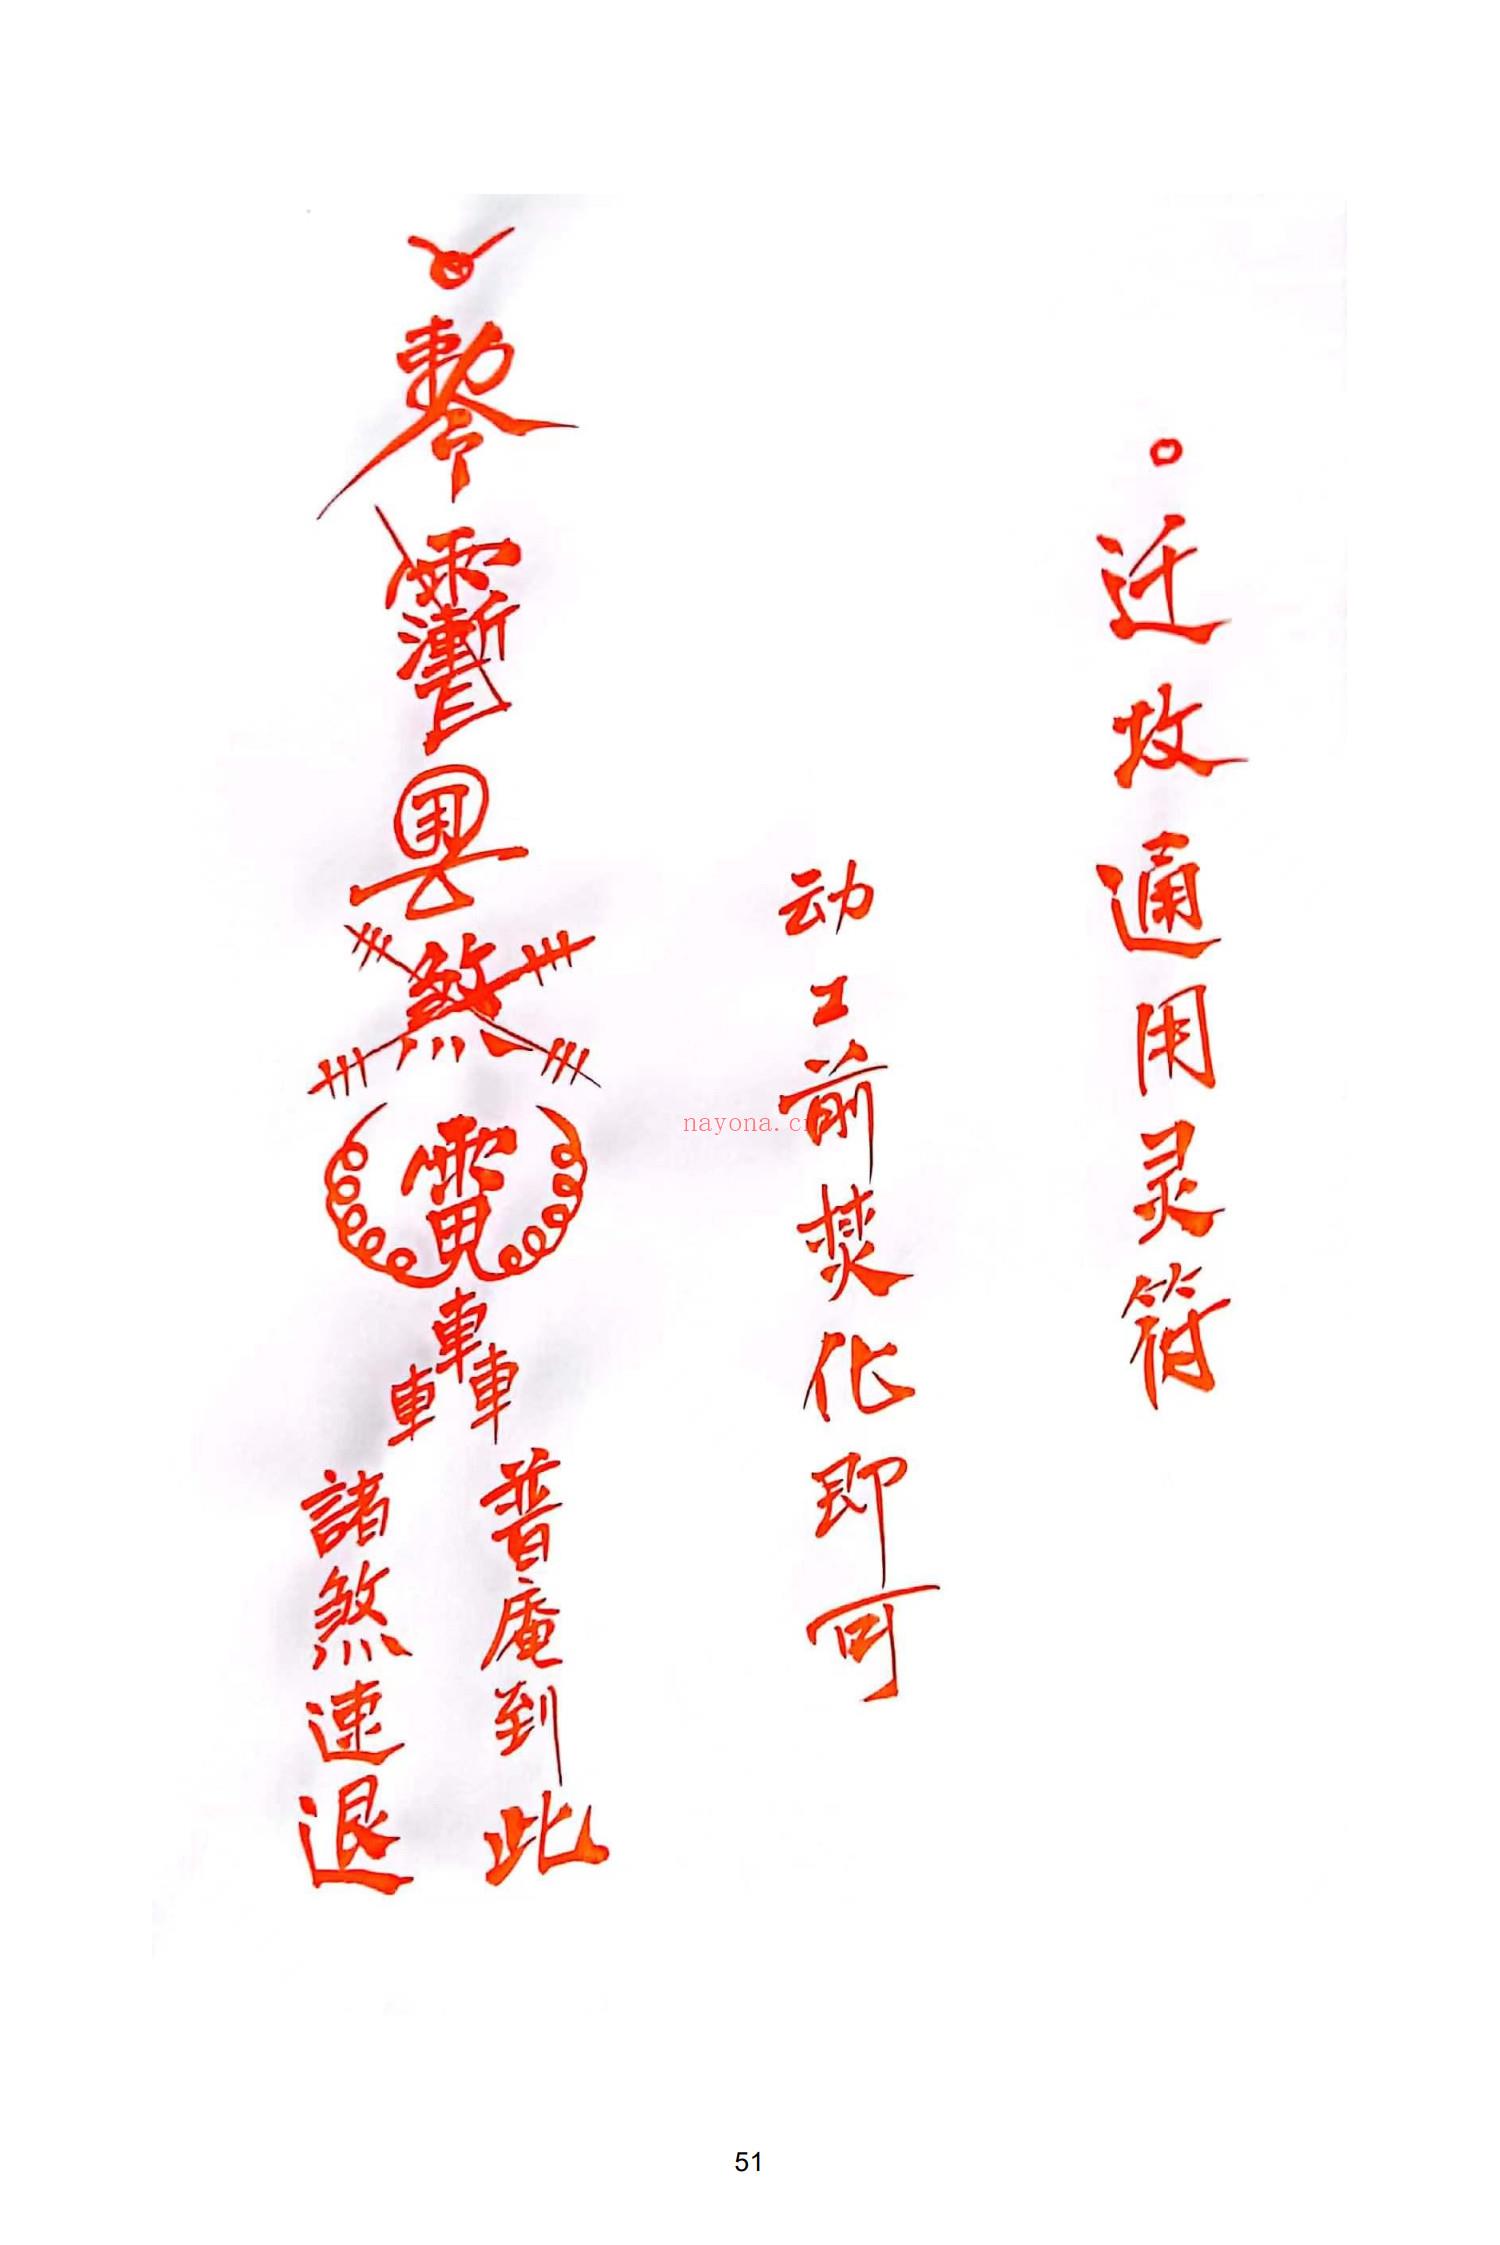 迁坟通用灵符
动工前焚化即可
敕令
煞
雷
轟
普庵到此
諸煞速退
nayona.cn
51